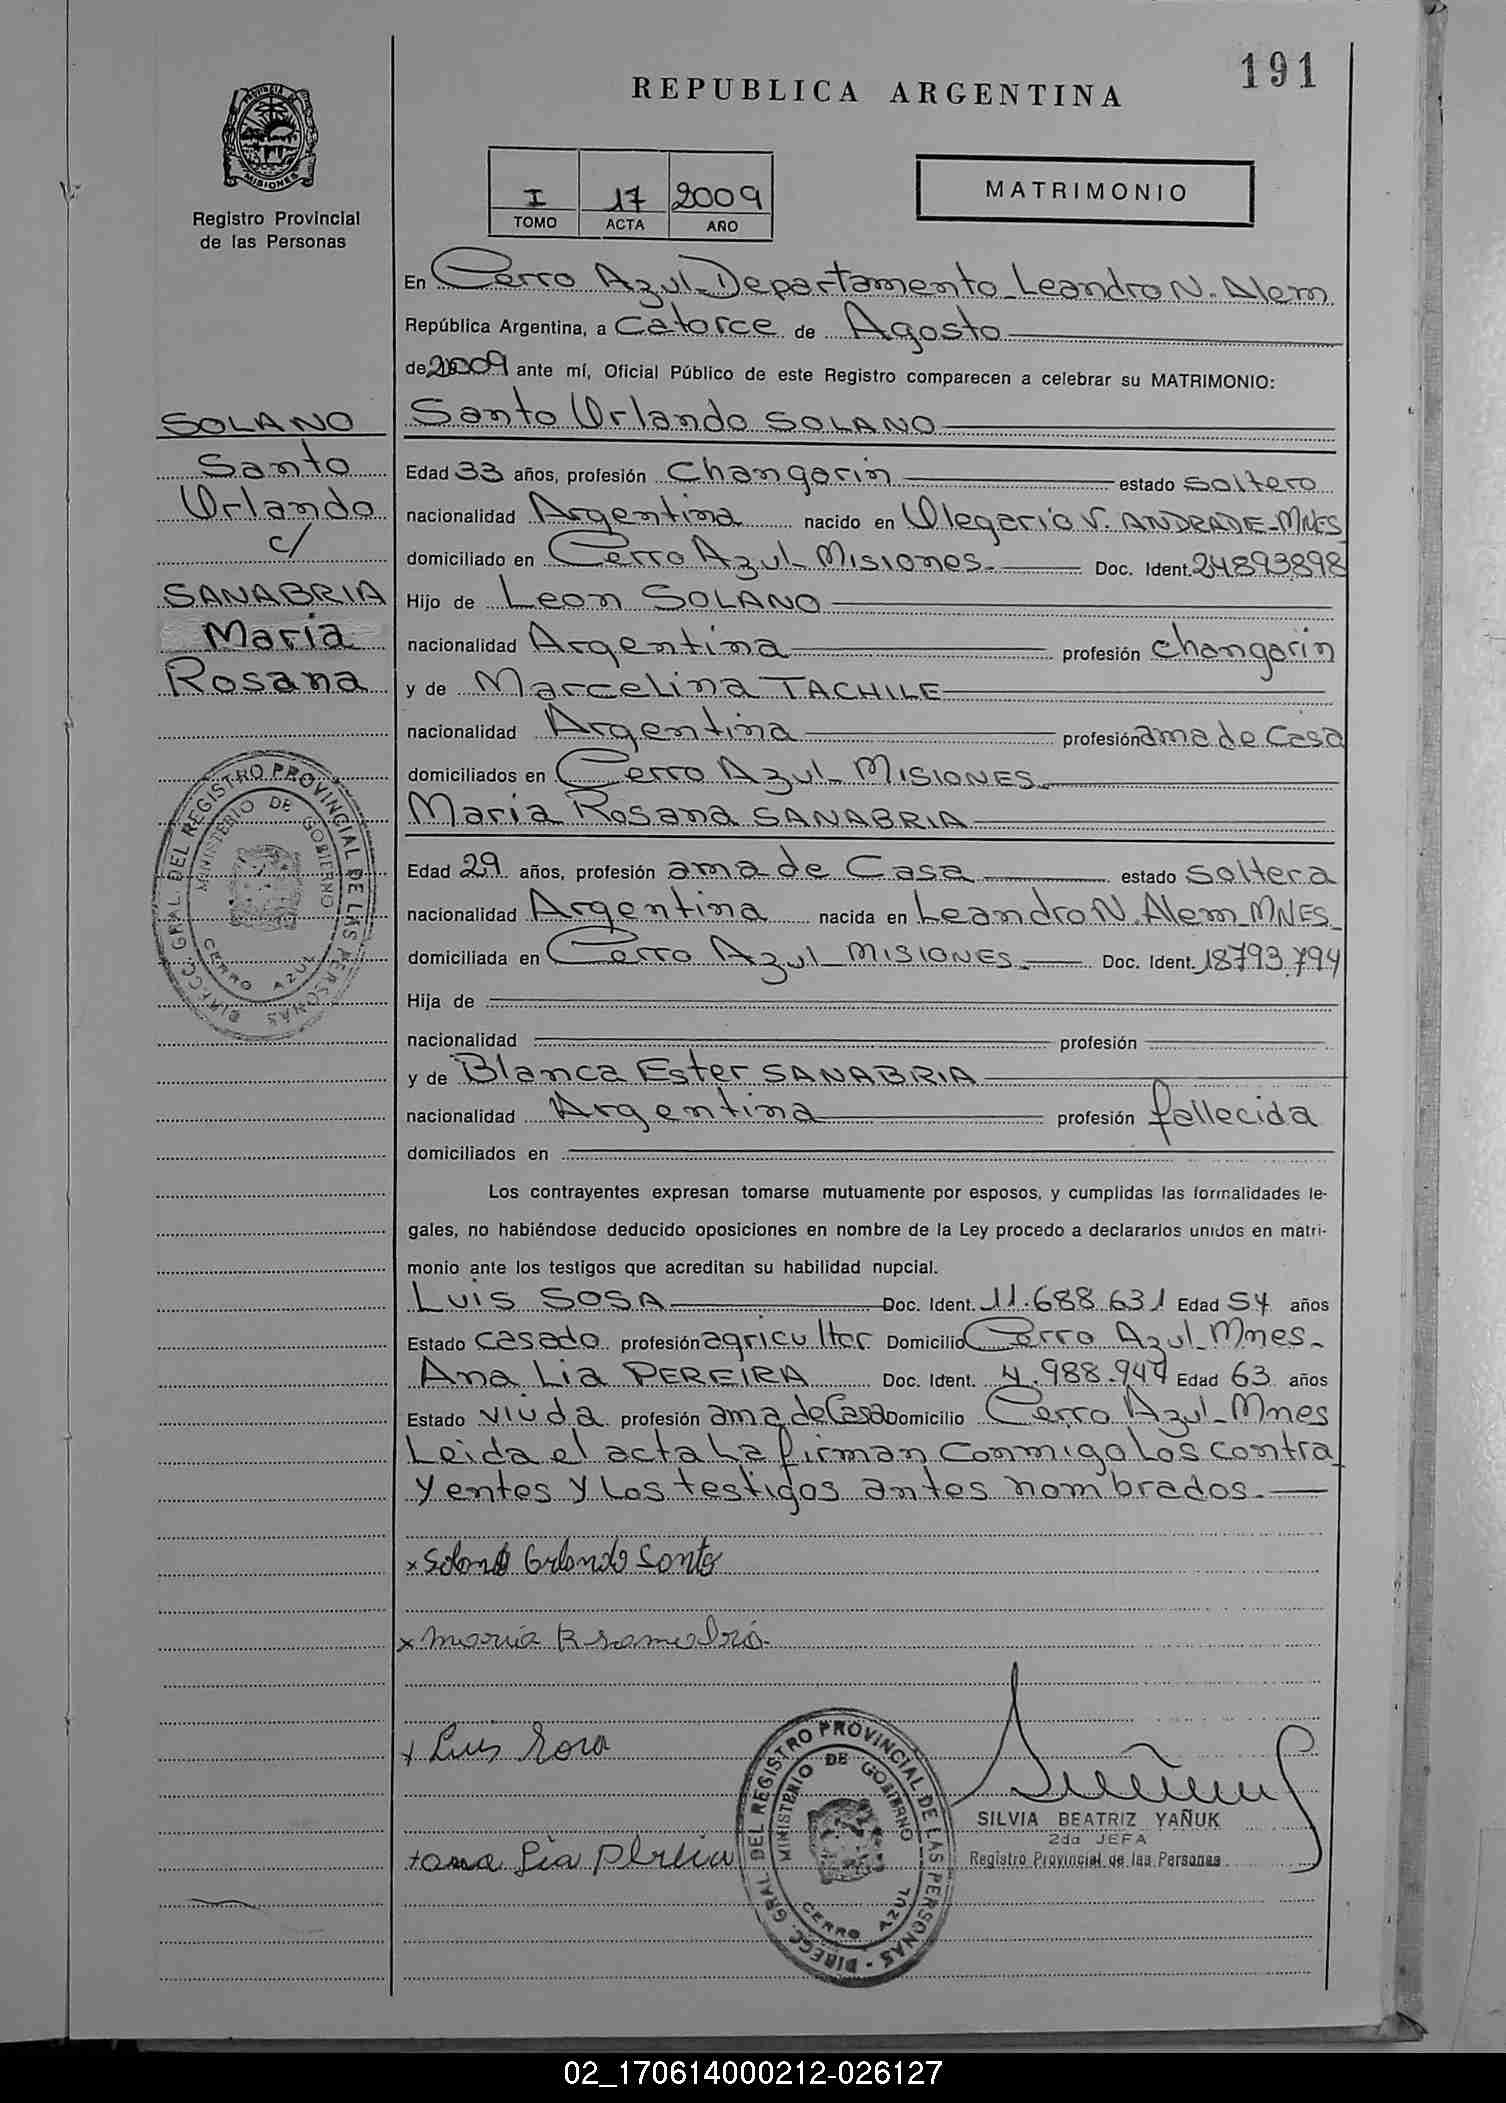 191
REPUBLICA ARGENTINA
PROVINCIA DE
MISIONES
Registro Provincial
de las Personas
I 17 2009
TOMO ACTA AÑO
MATRIMONIO
En Cerro Azul-Departamento Leandro N. Alem
República Argentina, a Catorce de Agosto
de 2009 ante mí, Oficial Público de este Registro comparecen a celebrar su MATRIMONIO:
SOLANO
Santo
Orlando
c/
SANABRIA
Maria
Rosana
Santo Orlando SOLANO
Edad 33 años, profesión Changarin estado soltero
nacionalidad Argentina nacido en Olegario V. ANDRADE-MNES
domiciliado en Cerro Azul Misiones.- Doc. Ident. 24893898
Hijo de Leon SOLANO
nacionalidad Argentina profesión changarin
y de Marcelina TACHILE
nacionalidad Argentina profesión ama de Casa
domiciliados en Cerro Azul-MISIONES.
Maria Rosana SANABRIA
Edad 29 años, profesión ama de Casa estado soltera
nacionalidad Argentina nacida en Leandro N. Alem MNES
domiciliada en Cerro Azul-MISIONES.- Doc. Ident. 18793.794
Hija de
nacionalidad profesión
y de Blanca Ester SANABRIA
nacionalidad Argentina profesión fallecida
domiciliados en
Los contrayentes expresan tomarse mutuamente por esposos, y cumplidas las formalidades le-
gales, no habiéndose deducido oposiciones en nombre de la Ley procedo a declararlos unidos en matri-
monio ante los testigos que acreditan su habilidad nupcial.
Luis SOSA Doc. Ident. 11.688.631 Edad 54 años
Estado casado profesión agricultor Domicilio Cerro Azul-Mnes-
Ana Lia PEREIRA Doc. Ident. 4.988.947 Edad 63 años
Estado viuda profesión ama de Casa Domicilio Cerro Azul-Mnes
Leida el acta la firman conmigo los contra
yentes y los testigos antes nombrados.-
DIRECC. GRAL DEL REGISTRO PROVINCIAL DE LAS PERSONAS
MINISTERIO DE GOBIERNO
CERRO AZUL
x Solano Orlando Santo
x Maria
x Luis Sosa
x ana Lia Pereia
DIRECC. GRAL DEL REGISTRO PROVINCIAL DE LAS PERSONAS
MINISTERIO DE GOBIERNO
CERRO AZUL
SILVIA BEATRIZ YAÑUK
2da JEFA
Registro Provincial de las Personas
02_170614000212-026127